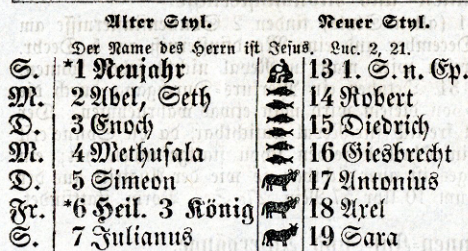 Alter Styl. Neuer Styl.
Der Name des Herrn ist Jesus. Luc. 2, 21.
S. *1 Neujahr 13 1. S. n. Ep.
M. 2 Abel, Seth 14 Robert
D. 3 Enoch 15 Diedrich
M. 4 Methusala 16 Giesbrecht
D. 5 Simeon 17 Antonius
Fr. *6 Heil. 3 König 18 Axel
S. 7 Julianus 19 Sara